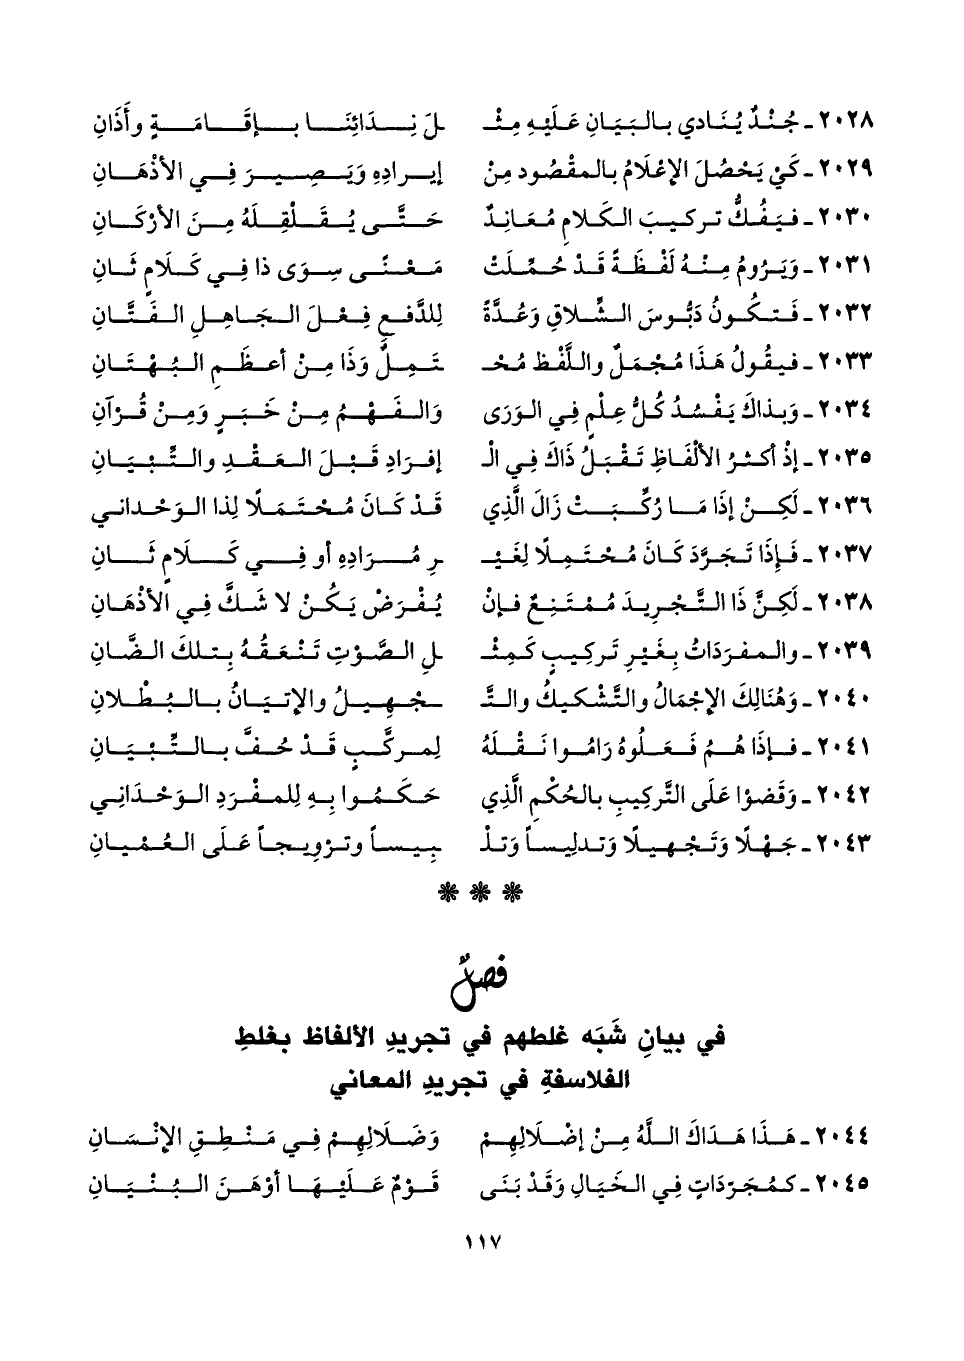 ٢٠٢٨ ـ جُنْدٌ يُنَادي بالبَيَانِ عَلَيْهِ مِثْـ ـلَ نِدَائِنَا بإقَامَةٍ وأَذَانِ
٢٠٢٩ ـ كَيْ يَحْصُلَ الإعْلَامُ بالمَقْصُودِ مِنْ إيرادِهِ وَيَصِيرَ فِي الأذْهَانِ
٢٠٣٠ ـ فيَفُكُّ تركيبَ الكَلَامِ مُعَانِدٌ حَتَّى يُقَلْقِلَهُ مِنَ الأرْكَانِ
٢٠٣١ ـ وَيَرُومُ مِنْهُ لَفْظَةً قَدْ حُمِّلَتْ مَعْنًى سِوَى ذا فِي كَلَامٍ ثَانِ
٢٠٣٢ ـ فَتَكُونُ دَبُّوسَ الشِّلَاقِ وَعُدَّةً لِلدَّفعِ فِعْلَ الجَاهِلِ الفَتَّانِ
٢٠٣٣ ـ فيقُولُ هَذَا مُجْمَلٌ واللَّفْظُ مُحْـ ـتَمِلٌ وَذَا مِنْ أعظَمِ البُهْتَانِ
٢٠٣٤ ـ وَبِذاكَ يَفْسُدُ كُلُّ عِلْمٍ فِي الوَرَى والفَهْمُ مِنْ خَبَرٍ وَمِنْ قُرْآنِ
٢٠٣٥ ـ إذْ أكثرُ الألْفَاظِ تَقْبَلُ ذَاكَ فِي الْـ إفرَادِ قَبْلَ العَقْدِ والتِّبْيَانِ
٢٠٣٦ ـ لَكِنْ إذَا مَا رُكِّبَتْ زَالَ الَّذِي قَدْ كَانَ مُحْتَمَلًا لِذا الوَحْدانِي
٢٠٣٧ ـ فَإِذَا تَجَرَّدَ كَانَ مُحْتَمِلًا لِغَيْـ ـرِ مُرَادِهِ أو فِي كَلَامٍ ثَانِ
٢٠٣٨ ـ لَكِنَّ ذَا التَّجْرِيدَ مُمْتَنِعٌ فإنْ يُفْرَضْ يَكُنْ لا شَكَّ فِي الأذْهَانِ
٢٠٣٩ ـ والمفرَدَاتُ بِغَيرِ تَركِيبٍ كَمِثْـ ـلِ الصَّوْتِ تَنْعَقُهُ بِتلكَ الضَّانِ
٢٠٤٠ ـ وَهُنَالِكَ الإجْمَالُ والتَّشْكِيكُ والتَّـ ـجْهِيلُ والإتيَانُ بالبُطْلَانِ
٢٠٤١ ـ فإذَا هُمُ فَعَلُوهُ رَامُوا نَقْلَهُ لِمركَّبٍ قَدْ حُفَّ بالتِّبْيَانِ
٢٠٤٢ ـ وَقَضَوْا عَلَى التَّركِيبِ بالحُكْمِ الَّذِي حَكَمُوا بِهِ لِلمفْرَدِ الوَحْدَانِي
٢٠٤٣ ـ جَهْلًا وَتَجْهِيلًا وَتدلِيساً وَتَلْـ ـبِيساً وترْوِيجاً عَلَى العُمْيَانِ
فصلٌ
في بيانِ شَبَه غلطهم في تجريدِ الألفاظ بغلطِ
الفلاسفةِ في تجريدِ المعاني
٢٠٤٤ ـ هَذَا هَدَاكَ اللَّهُ مِنْ إضْلَالِهِمْ وَضَلَالِهِمْ فِي مَنْطِقِ الإنْسَانِ
٢٠٤٥ ـ كمُجَرَّدَاتٍ فِي الخَيَالِ وَقَدْ بَنَى قَوْمٌ عَلَيْهَا أوْهَنَ البُنْيَانِ
١١٧